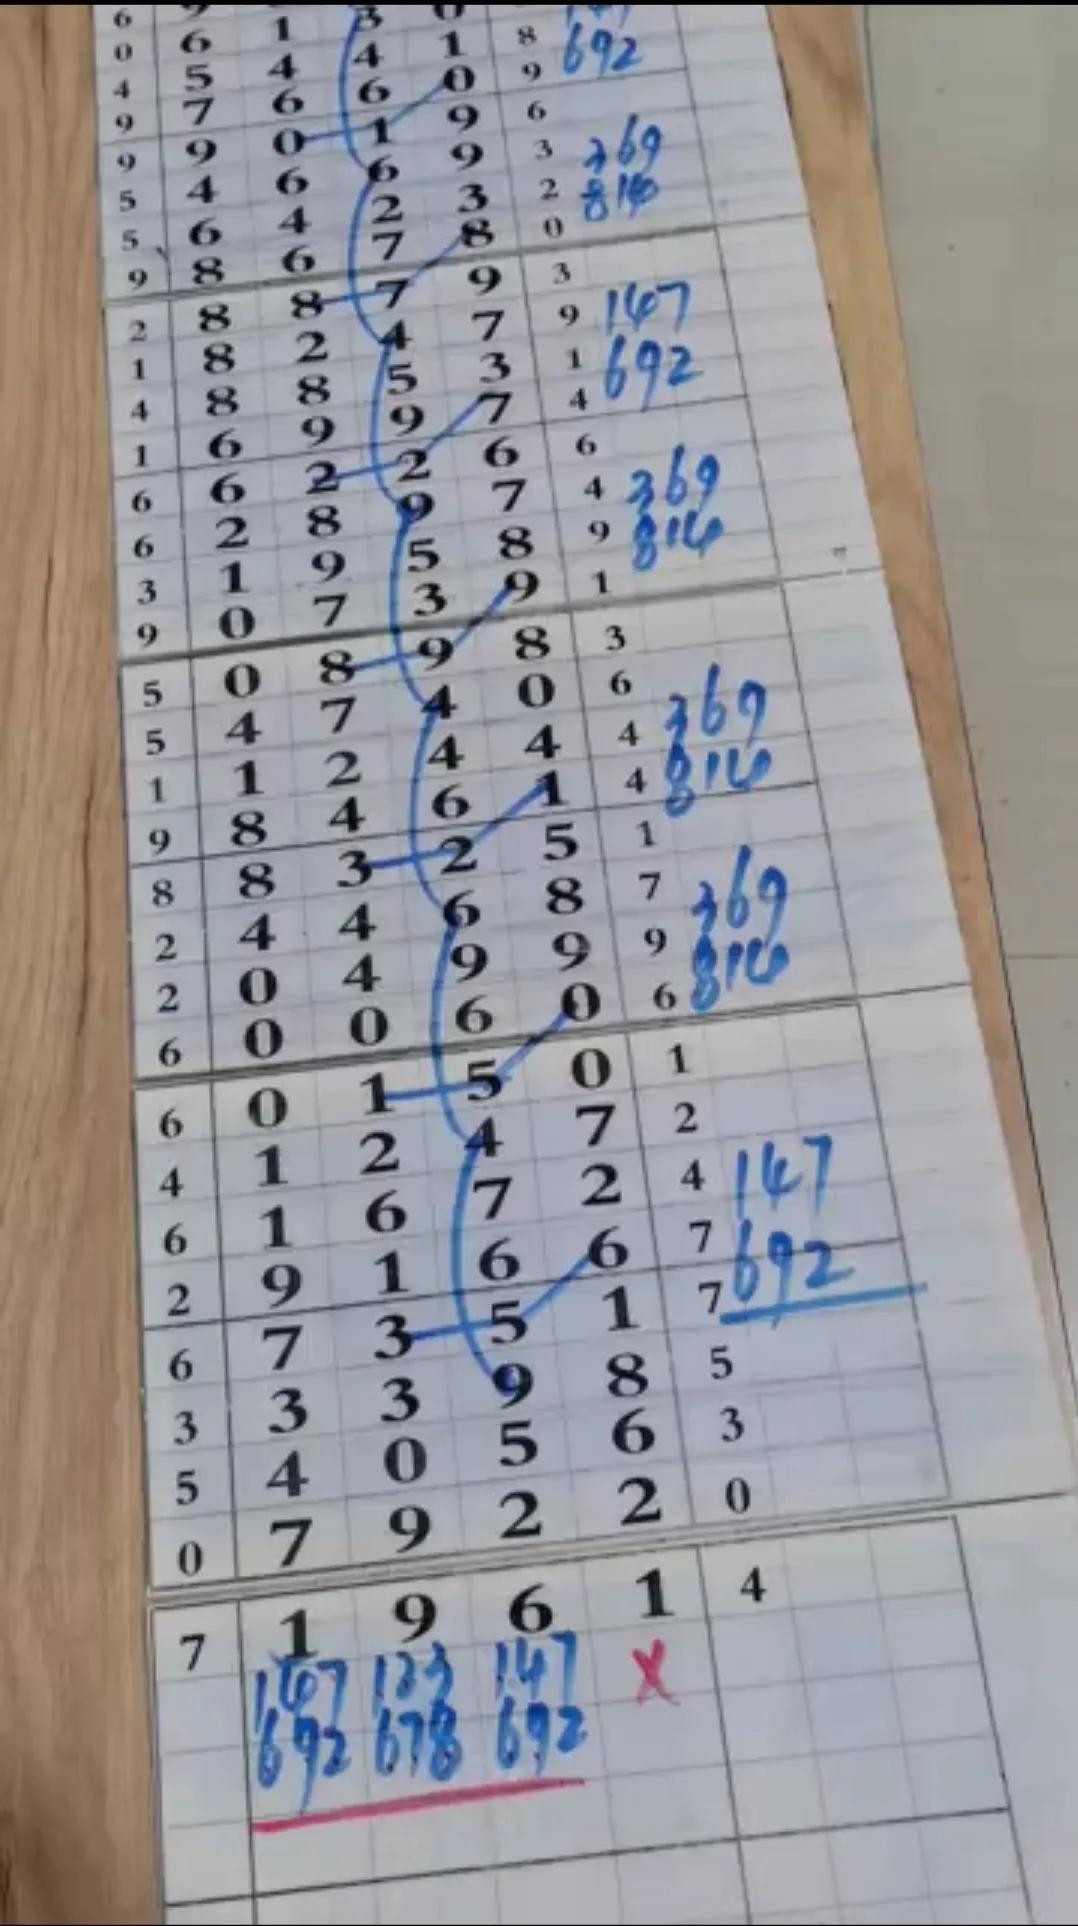 6 9 3 0 147
0 6 1 4 1 8 692
4 5 4 6 0 9
9 7 6 1 9 6
9 9 0 6 9 3 369
5 4 6 2 3 2 814
5 6 4 7 8 0
9 8 6 7 9 3
2 8 8 4 7 9 147
1 8 2 5 3 1 692
4 8 8 9 7 4
1 6 9 2 6 6
6 6 2 9 7 4 369
6 2 8 5 8 9 814
3 1 9 3 9 1
9 0 7 9 8 3
5 0 8 4 0 6 369
5 4 7 4 4 4 814
1 1 2 6 1 4
9 8 4 2 5 1
8 8 3 6 8 7 369
2 4 4 9 9 9 814
2 0 4 6 0 6
6 0 0 5 0 1
6 0 1 4 7 2
4 1 2 7 2 4 147
6 1 6 6 6 7 692
2 9 1 5 1 7
6 7 3 9 8 5
3 3 3 5 6 3
5 4 0 2 2 0
0 7 9
7 1 9 6 1 4
147 123 147 X
692 678 692